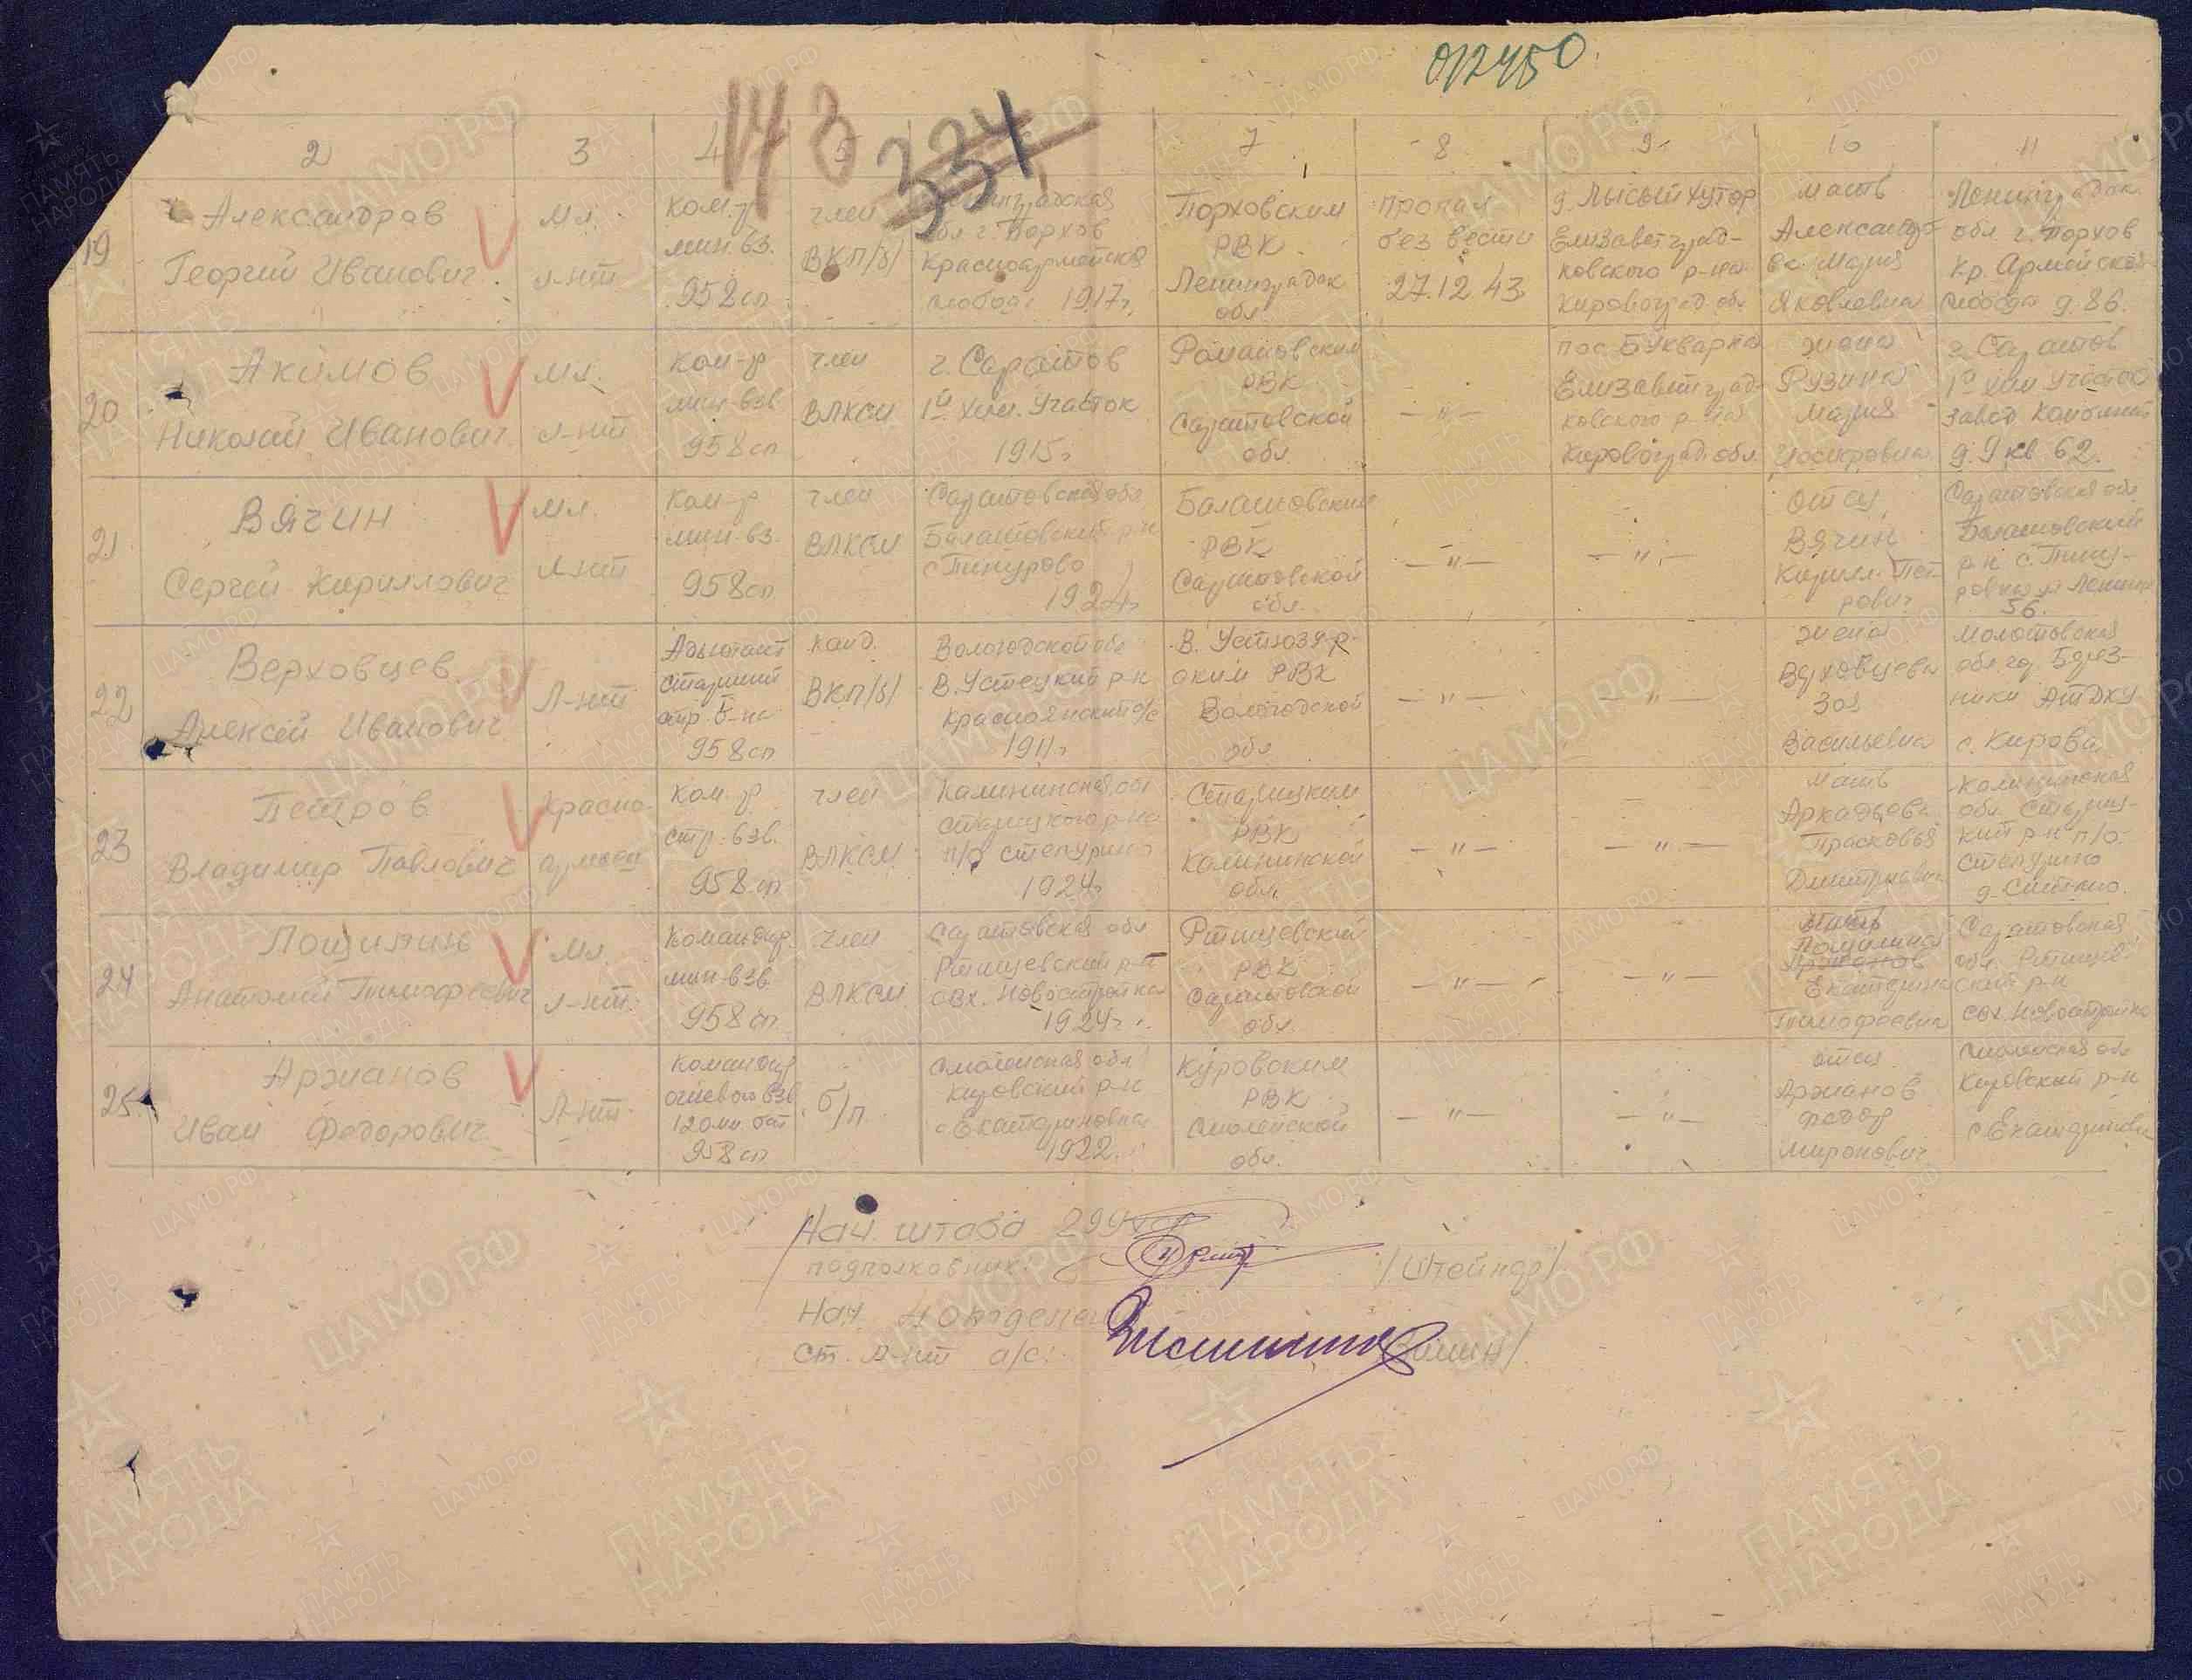 012450
143
334
2 3 4 5 7 8 9 10 11
19
Александров
Георгий Иванович
Мл.
л-нт
Ком-р
мин. вз.
958 сп
член
ВКП/б/
обл г. Порхов
Красноармейская
слобода 1917г.
Порховским
РВК
Ленинградск
обл
пропал
без вести
27.12.43
д. Лысый Хутор
Елизаветград-
ковского р-на
Кировоград обл
мать
Александро-
ва Мария
Яковлевна
Ленинградск.
обл г. Порхов
Кр. Армейская
слобода д. 86.
20
Акимов
Николай Иванович
Мл.
л-нт
Ком-р
мин. взв
958 сп
член
ВЛКСМ
г. Саратов
1й хим. Участок
1915г
Романовским
РВК
Саратовской
обл.
— " —
пос. Букварка
Елизаветград-
ковского р-на
Кировоград. обл
жена
Рузина
Мария
г. Саратов
1й хим участок
завод Комбинат
д. 9 кв 62.
21
Вячин
Сергей Кириллович
Мл.
л-нт
Ком-р
мин. вз.
958 сп
член
ВЛКСМ
Саратовская обл
Балашовский р-н
с Пинурово
1924г
Балашовским
РВК
Саратовской
обл.
— " —
— " —
отец
Вячин
Кирилл Пет-
рович
Саратовская обл
Балашовский
р-н с. Пину-
рово ул Ленина
56.
22
Верховцев
Алексей Иванович
Л-нт
Адьютант
старший
стр. б-на
958 сп
Канд.
ВКП/б/
Вологодской обл
В. Устецкий р-н
1911г
В. Устюзя-
ским РВК
Вологодской
обл
— " —
— " —
жена
Верховцева
Зоя
Васильевна
Молотовская
обл гор. Берез-
ники
с. Кирова
23
Петров
Владимир Павлович
Красно-
армеец
Ком-р
стр. взв.
958 сп
член
ВЛКСМ
Калининская обл
Старицкого р-на
п/о Степурино
1924г
Старицким
РВК
Калининской
обл.
— " —
— " —
мать
Аркадьева
Прасковья
Дмитриевна
Калининская
обл. Стариц-
кий р-н п/о
Степурино
24
Лощилин
Анатолий Тимофеевич
Мл.
л-нт.
Командир
мин. взв.
958 сп
член
ВЛКСМ
Саратовская обл
Ртищевский р-н
свх. Новостройка
1924г.
Ртищевский
РВК
Саратовской
обл.
— " —
— " —
мать
Лощилина
Екатерина
Тимофеевна
Саратовская
обл. Ртищев-
ский р-н
свх. Новостройка
25
Аржанов
Иван Федорович
Л-нт.
Командир
огневого взв
120 мм бат
958 сп
б/п
Смоленская обл
Кировский р-н
с Екатериновка
1922
Кировским
РВК
Смоленской
обл.
— " —
— " —
отец
Аржанов
Федор
Миронович
Смоленская обл
Кировский р-н
с Екатериновка
Нач. штаба 299 сд
подполковник /Штейнер/
Нач. 4 отдела
Ст. л-нт а/с: